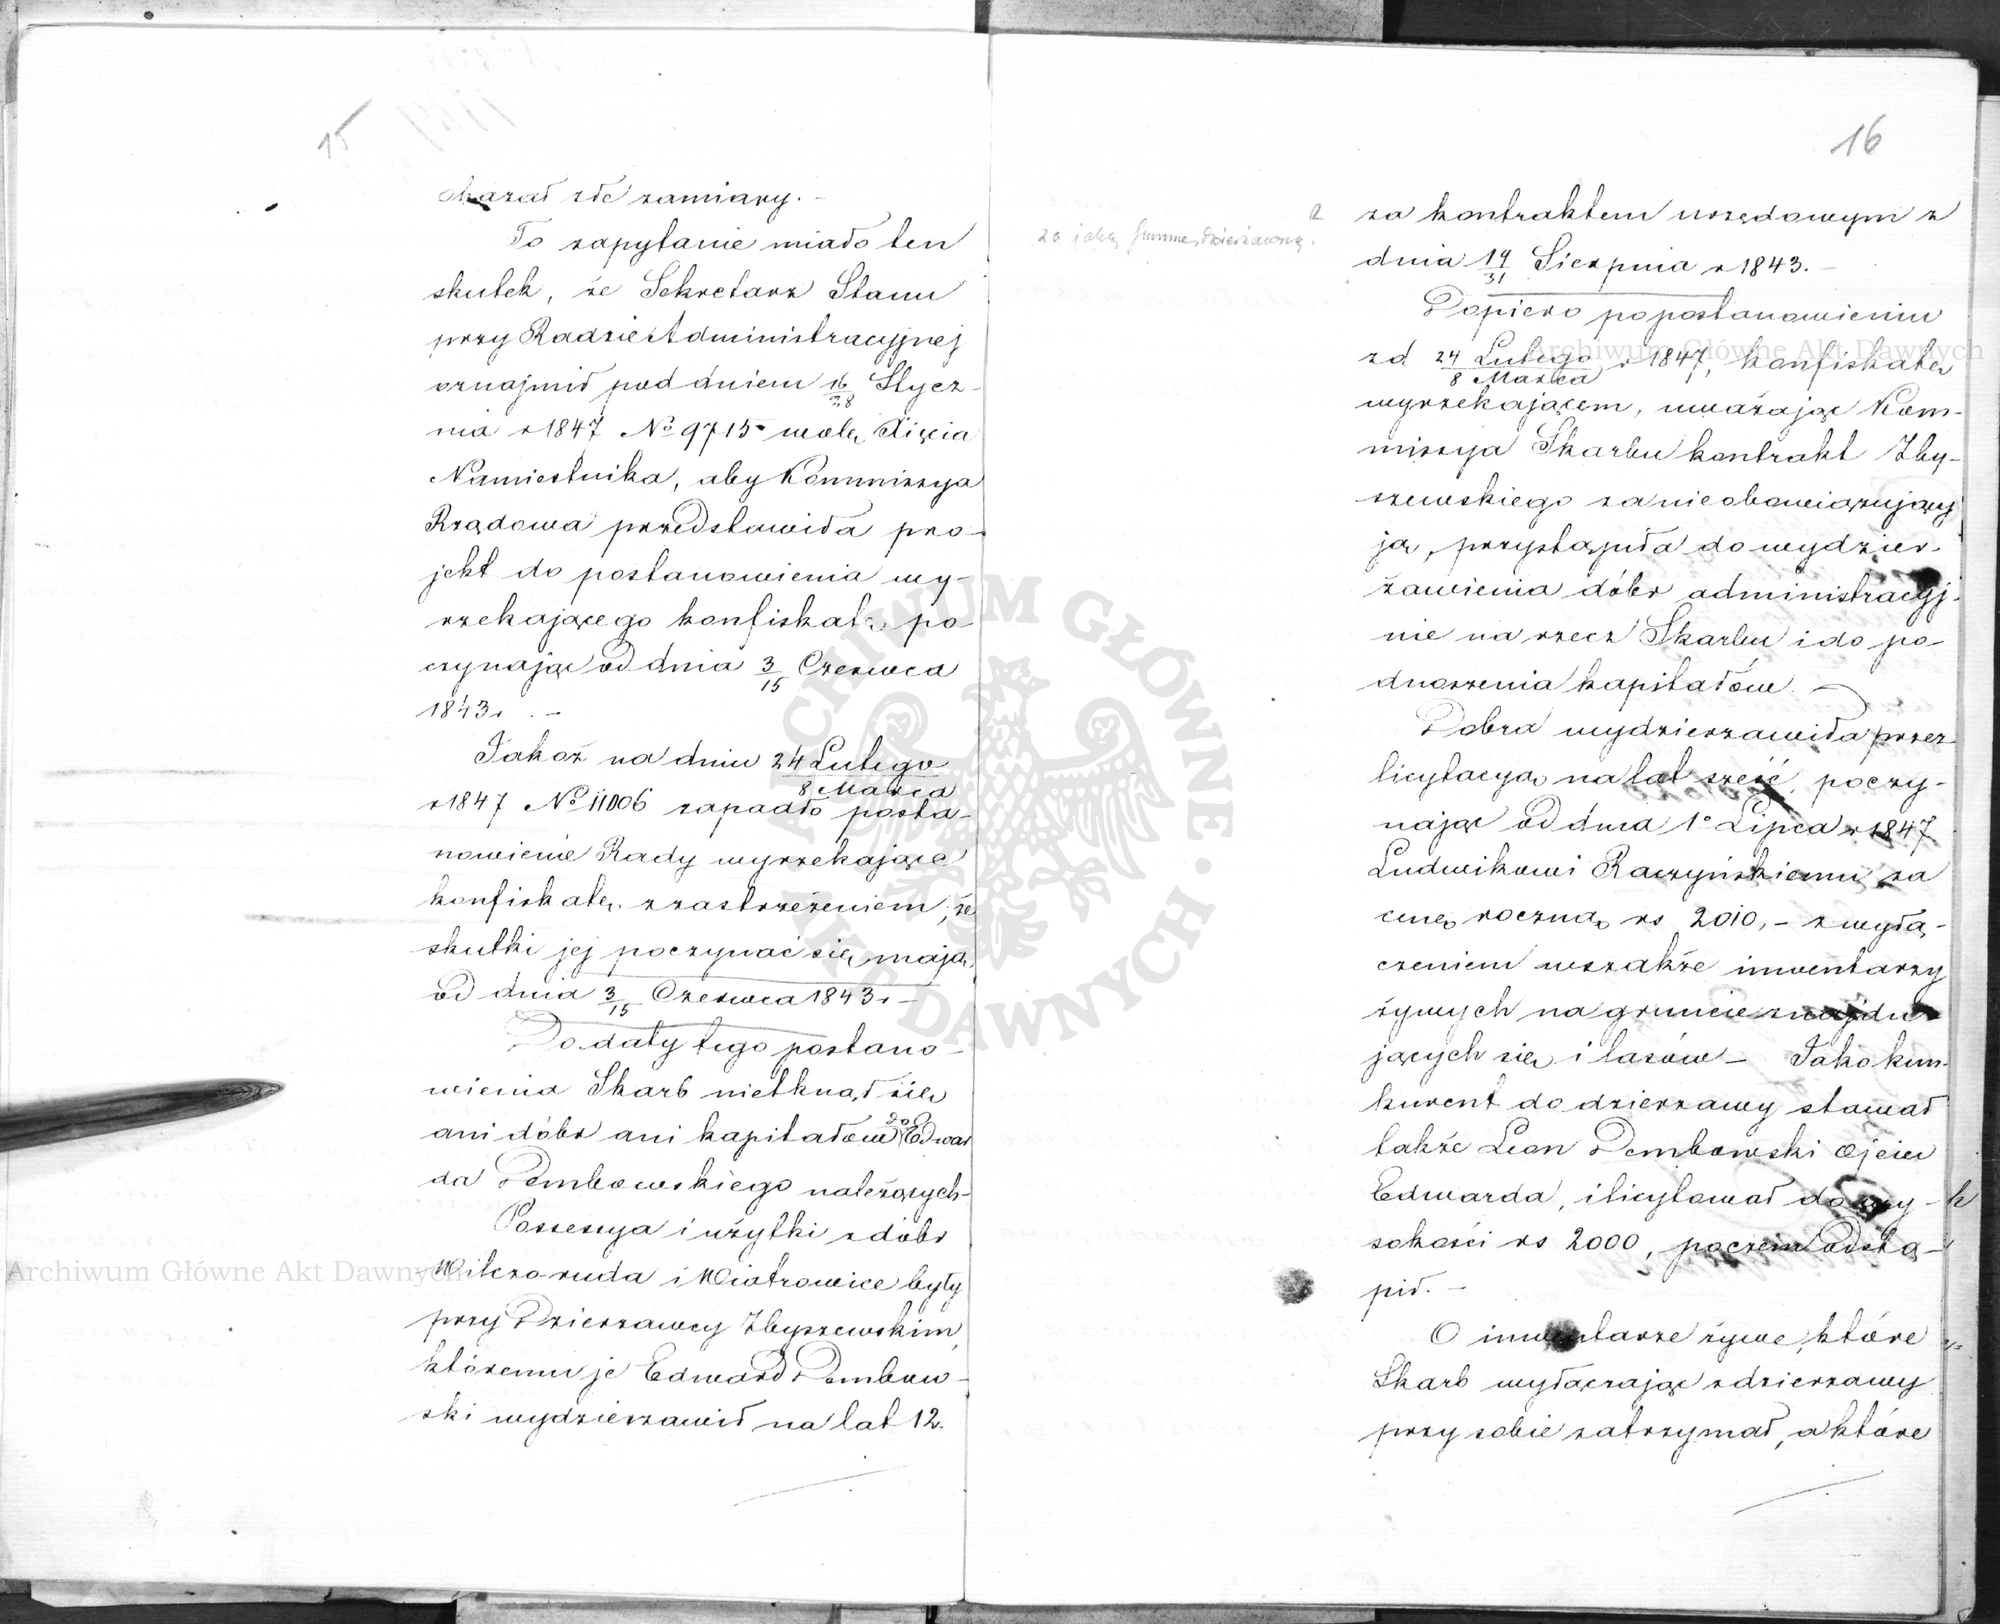 15
okazał złe zamiary. –
To zapytanie miało ten
skutek, że Sekretarz Stanu
przy Radzie Administracyjnej
oznajmił pod dniem 16/28 Stycz-
nia r 1847 № 9715 wolę Xięcia
Namiestnika, aby Kommissya
Rządowa przedstawiła pro-
jekt do postanowienia wy-
rzekającego konfiskatę, po-
czynając od dnia 3/15 Czerwca
1843 r. –
Jakoż na dniu 24 Lutego / 8 Marca
r 1847 № 11006 zapadło posta-
nowienie Rady wyrzekające
konfiskatę, z zastrzeżeniem, że
skutki jej poczynać się mają
od dnia 3/15 Czerwca 1843 r –
Do daty tego postano-
wienia Skarb nietknął się
ani dóbr ani kapitałów do Edwar
da Dembowskiego należących –
Possessya i użytki z dóbr
Wilczoruda i Wiatrowice były
przy Dzierzawcy Zbyszewskim,
któremu je Edward Dembow-
ski wydzierzawił na lat 12.
16
za jaką summę dzierżawną.
za kontraktem urzędowym z
dnia 19/31 Sierpnia r 1843. –
Dopiero po postanowieniu
zd 24 Lutego / 8 Marca r 1847, konfiskatę
wyrzekającem, uważając Kom-
missya Skarbu kontrakt Zby-
szewskiego za nieobowiązujący
ją, przystąpiła do wydzier-
żawienia dóbr administracyj-
nie na rzecz Skarbu i do po-
dnoszenia kapitałów. –
Dobra wydzierzawiła przez
licytacyą na lat sześć, poczy-
nając od dnia 1° Lipca r 1847
Ludwikowi Raczyńskiemu za
cenę roczną rs 2010, – z wyłą-
czeniem wszakże inwentarzy
żywych na gruncie znajdu-
jących się i lasów – Jako kon-
kurent do dzierzawy stawał
także Leon Dembowski Ojciec
Edwarda, i licytował do wy-
sokości rs 2000, poczem odstą-
pił. –
O inwentarze żywe, które
Skarb wyłączając z dzierzawy
przy sobie zatrzymał, a które
Archiwum Główne Akt Dawnych
Archiwum Główne Akt Dawnych
ARCHIWUM GŁÓWNE · AKT DAWNYCH ·